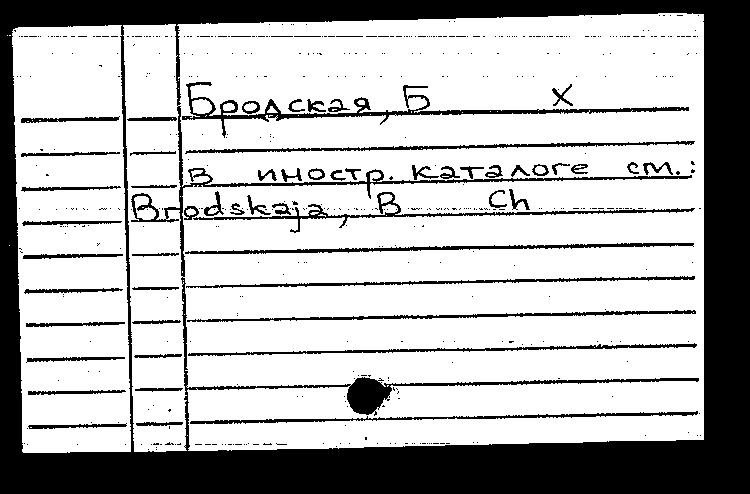 Бродская, Б X
В иностр. каталоге см.:
Brodskaja, B Ch